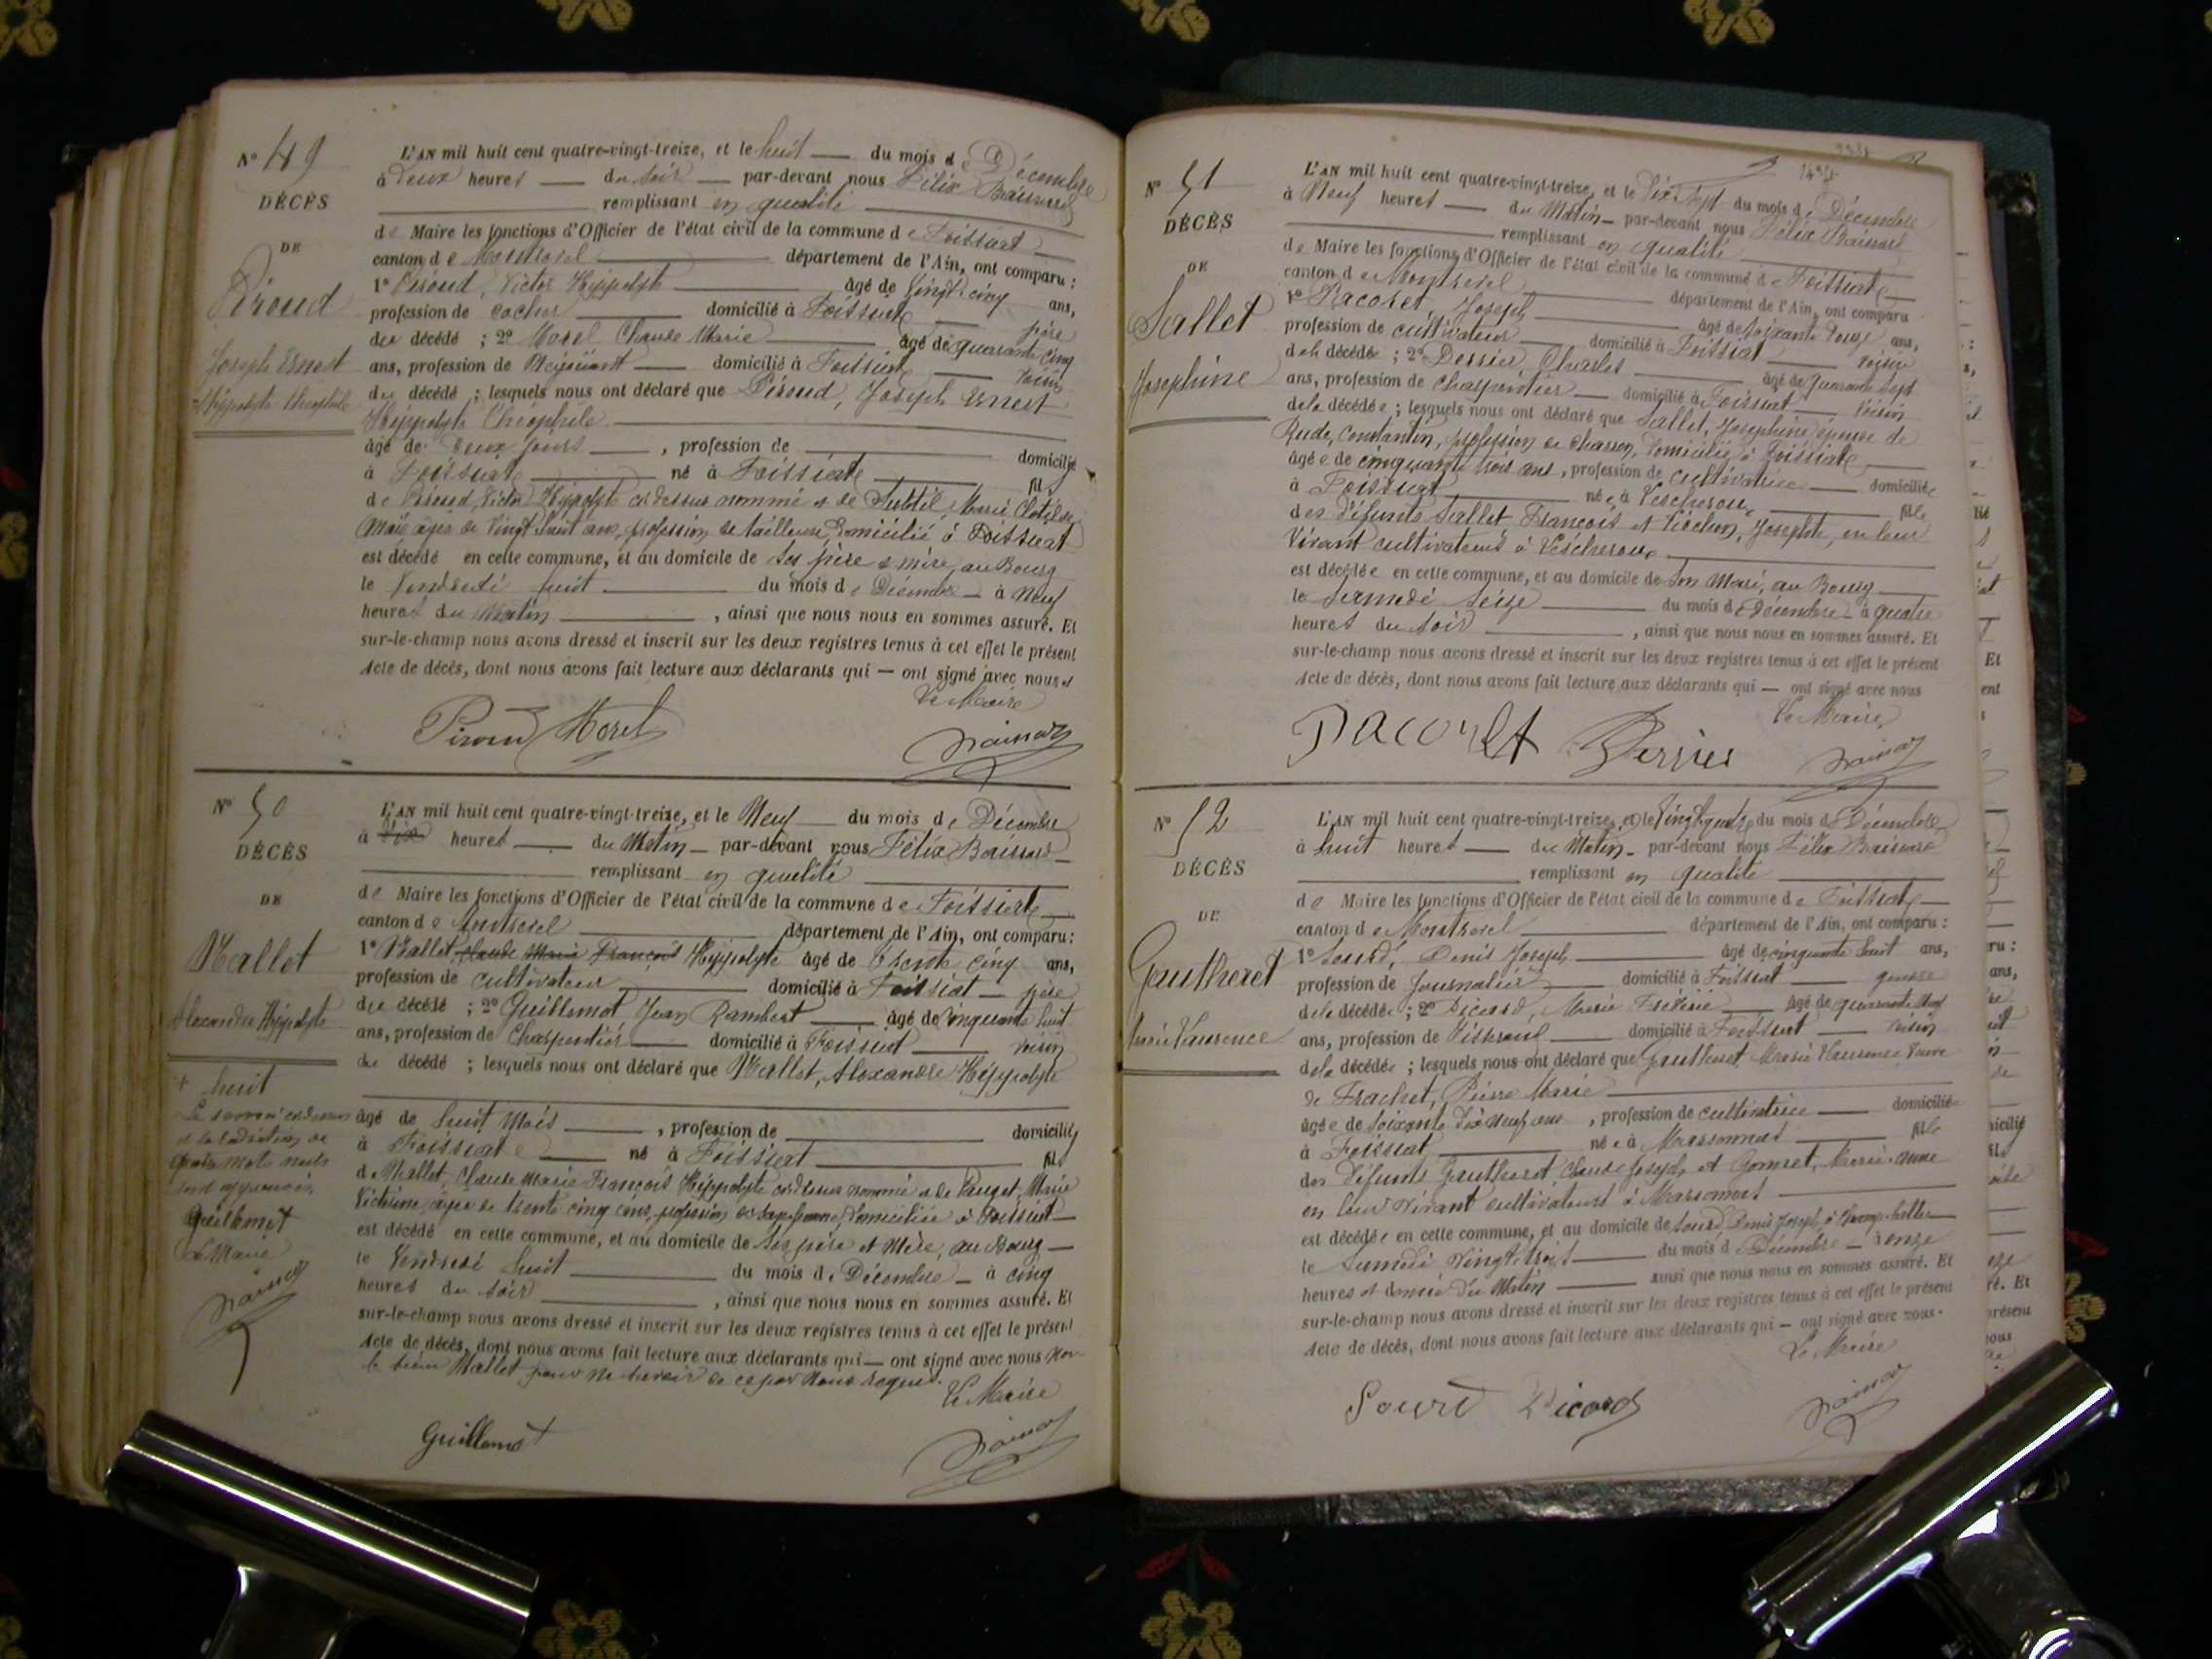 N° 49
DÉCÈS
DE
Piroud
Joseph Ernest
Hippolyte Théophile
L'AN mil huit cent quatre-vingt-treize, et le huit — du mois de Décembre
à Deux heures — du soir — par-devant nous Félix
remplissant en qualité
de Maire les fonctions d'Officier de l'état civil de la commune de Foissiat
canton de Montrevel département de l'Ain, ont comparu :
1° Piroud, Victor Hippolyte âgé de Vingt cinq ans,
profession de cocher domicilié à Foissiat père
du décédé ; 2° Morel Claude Marie âgé de quarante cinq
ans, profession de Négociant domicilié à Foissiat voisin
du décédé ; lesquels nous ont déclaré que Piroud, Joseph Ernest
Hippolyte Théophile
âgé de Deux jours , profession de domicilié
à Foissiat né à Foissiat fils
de Piroud, Victor Hippolyte ci-dessus nommé et de Subtil, Marie Clotilde
âgée de Vingt huit ans, profession de tailleuse, domicilié à Foissiat
est décédé en cette commune, et au domicile de ses père & mère, au Bourg
le Vendredi huit du mois de Décembre à Neuf
heures du Matin , ainsi que nous nous en sommes assuré. Et
sur-le-champ nous avons dressé et inscrit sur les deux registres tenus à cet effet le présent
Acte de décès, dont nous avons fait lecture aux déclarants qui — ont signé avec nous
Le Maire
Piroud Morel
N° 50
DÉCÈS
DE
Mallet
Alexandre Hippolyte
+ huit
Le renvoi ci-dessus
et la radiation de
quatre mots nuls
sont approuvés.
Guillemot
Le Maire
L'AN mil huit cent quatre-vingt-treize, et le Neuf du mois de Décembre
à dix heures — du Matin — par-devant nous Félix
remplissant en qualité
de Maire les fonctions d'Officier de l'état civil de la commune de Foissiat
canton de Montrevel département de l'Ain, ont comparu :
1° Mallet, Claude Marie François Hippolyte âgé de trente cinq ans,
profession de cultivateur domicilié à Foissiat — père
du décédé ; 2° Guillemot Jean Rambert âgé de cinquante huit
ans, profession de Charpentier domicilié à Foissiat voisin
du décédé ; lesquels nous ont déclaré que Mallet, Alexandre Hippolyte
âgé de huit Mois , profession de domicilié
à Foissiat né à Foissiat fils
de Mallet, Claude Marie François Hippolyte ci-dessus nommé et de Pauget, Marie
Victorine, âgée de trente cinq ans, profession de sage-femme, domiciliée à Foissiat
est décédé en cette commune, et au domicile de ses père et Mère, au Bourg —
le Vendredi huit du mois de Décembre — à cinq
heures du soir , ainsi que nous nous en sommes assuré. Et
sur-le-champ nous avons dressé et inscrit sur les deux registres tenus à cet effet le présent
Acte de décès, dont nous avons fait lecture aux déclarants qui — ont signé avec nous non
le sieur Mallet pour ne savoir de ce par Nous requis.
Le Maire
Guillemot
N° 51
DÉCÈS
DE
Sallet
Joséphine
L'AN mil huit cent quatre-vingt-treize, et le Dix Sept du mois de Décembre
à Neuf heures — du Matin — par-devant nous Félix
remplissant en qualité
de Maire les fonctions d'Officier de l'état civil de la commune de Foissiat
canton de Montrevel département de l'Ain, ont comparu
1° Pacoret, Joseph âgé de soixante Douze ans,
profession de cultivateur domicilié à Foissiat voisin
de la décédée ; 2° Perrier Charles âgé de quarante sept
ans, profession de charpentier domicilié à Foissiat voisin
de la décédée ; lesquels nous ont déclaré que Sallet, Joséphine épouse de
Rude, Constantin, profession de charron, domicilié à Foissiat
âgée de cinquante trois ans, profession de cultivatrice domiciliée
à Foissiat née à Vescherou fille
des défunts Sallet François et Josephte, en leur
Vivant cultivateurs à Vescherou
est décédée en cette commune, et au domicile de son Mari, au Bourg
le Samedi Seize du mois de Décembre à quatre
heures du soir , ainsi que nous nous en sommes assuré. Et
sur-le-champ nous avons dressé et inscrit sur les deux registres tenus à cet effet le présent
Acte de décès, dont nous avons fait lecture aux déclarants qui — ont signé avec nous
Le Maire
Pacoret Perrier
N° 52
DÉCÈS
DE
Gautheret
Marie Laurence
L'AN mil huit cent quatre-vingt-treize, et le Vingt quatre du mois de Décembre
à huit heures — du Matin — par-devant nous Félix
remplissant en qualité
de Maire les fonctions d'Officier de l'état civil de la commune de Foissiat
canton de Montrevel département de l'Ain, ont comparu :
1° Sourd, Denis Joseph âgé de cinquante huit ans,
profession de Journalier domicilié à Foissiat gendre
de la décédée ; 2° Picard, Marie Frédéric âgé de quarante neuf
ans, profession de Tisserand domicilié à Foissiat voisin
de la décédée ; lesquels nous ont déclaré que Gautheret Marie Laurence Veuve
de Frachet, Pierre Marie
âgée de soixante dix neuf ans , profession de cultivatrice domiciliée
à Foissiat née à Marsonnas fille
des Défunts Gautheret Claude Joseph et Gonnet, Marie-Anne
en leur Vivant cultivateurs à Marsonnas
est décédée en cette commune, et au domicile de Sourd, Denis Joseph, à
le Samedi Vingt trois du mois de Décembre — à onze
heures et demie du Matin ainsi que nous nous en sommes assuré. Et
sur-le-champ nous avons dressé et inscrit sur les deux registres tenus à cet effet le présent
Acte de décès, dont nous avons fait lecture aux déclarants qui — ont signé avec nous.
Le Maire
Sourd Picard